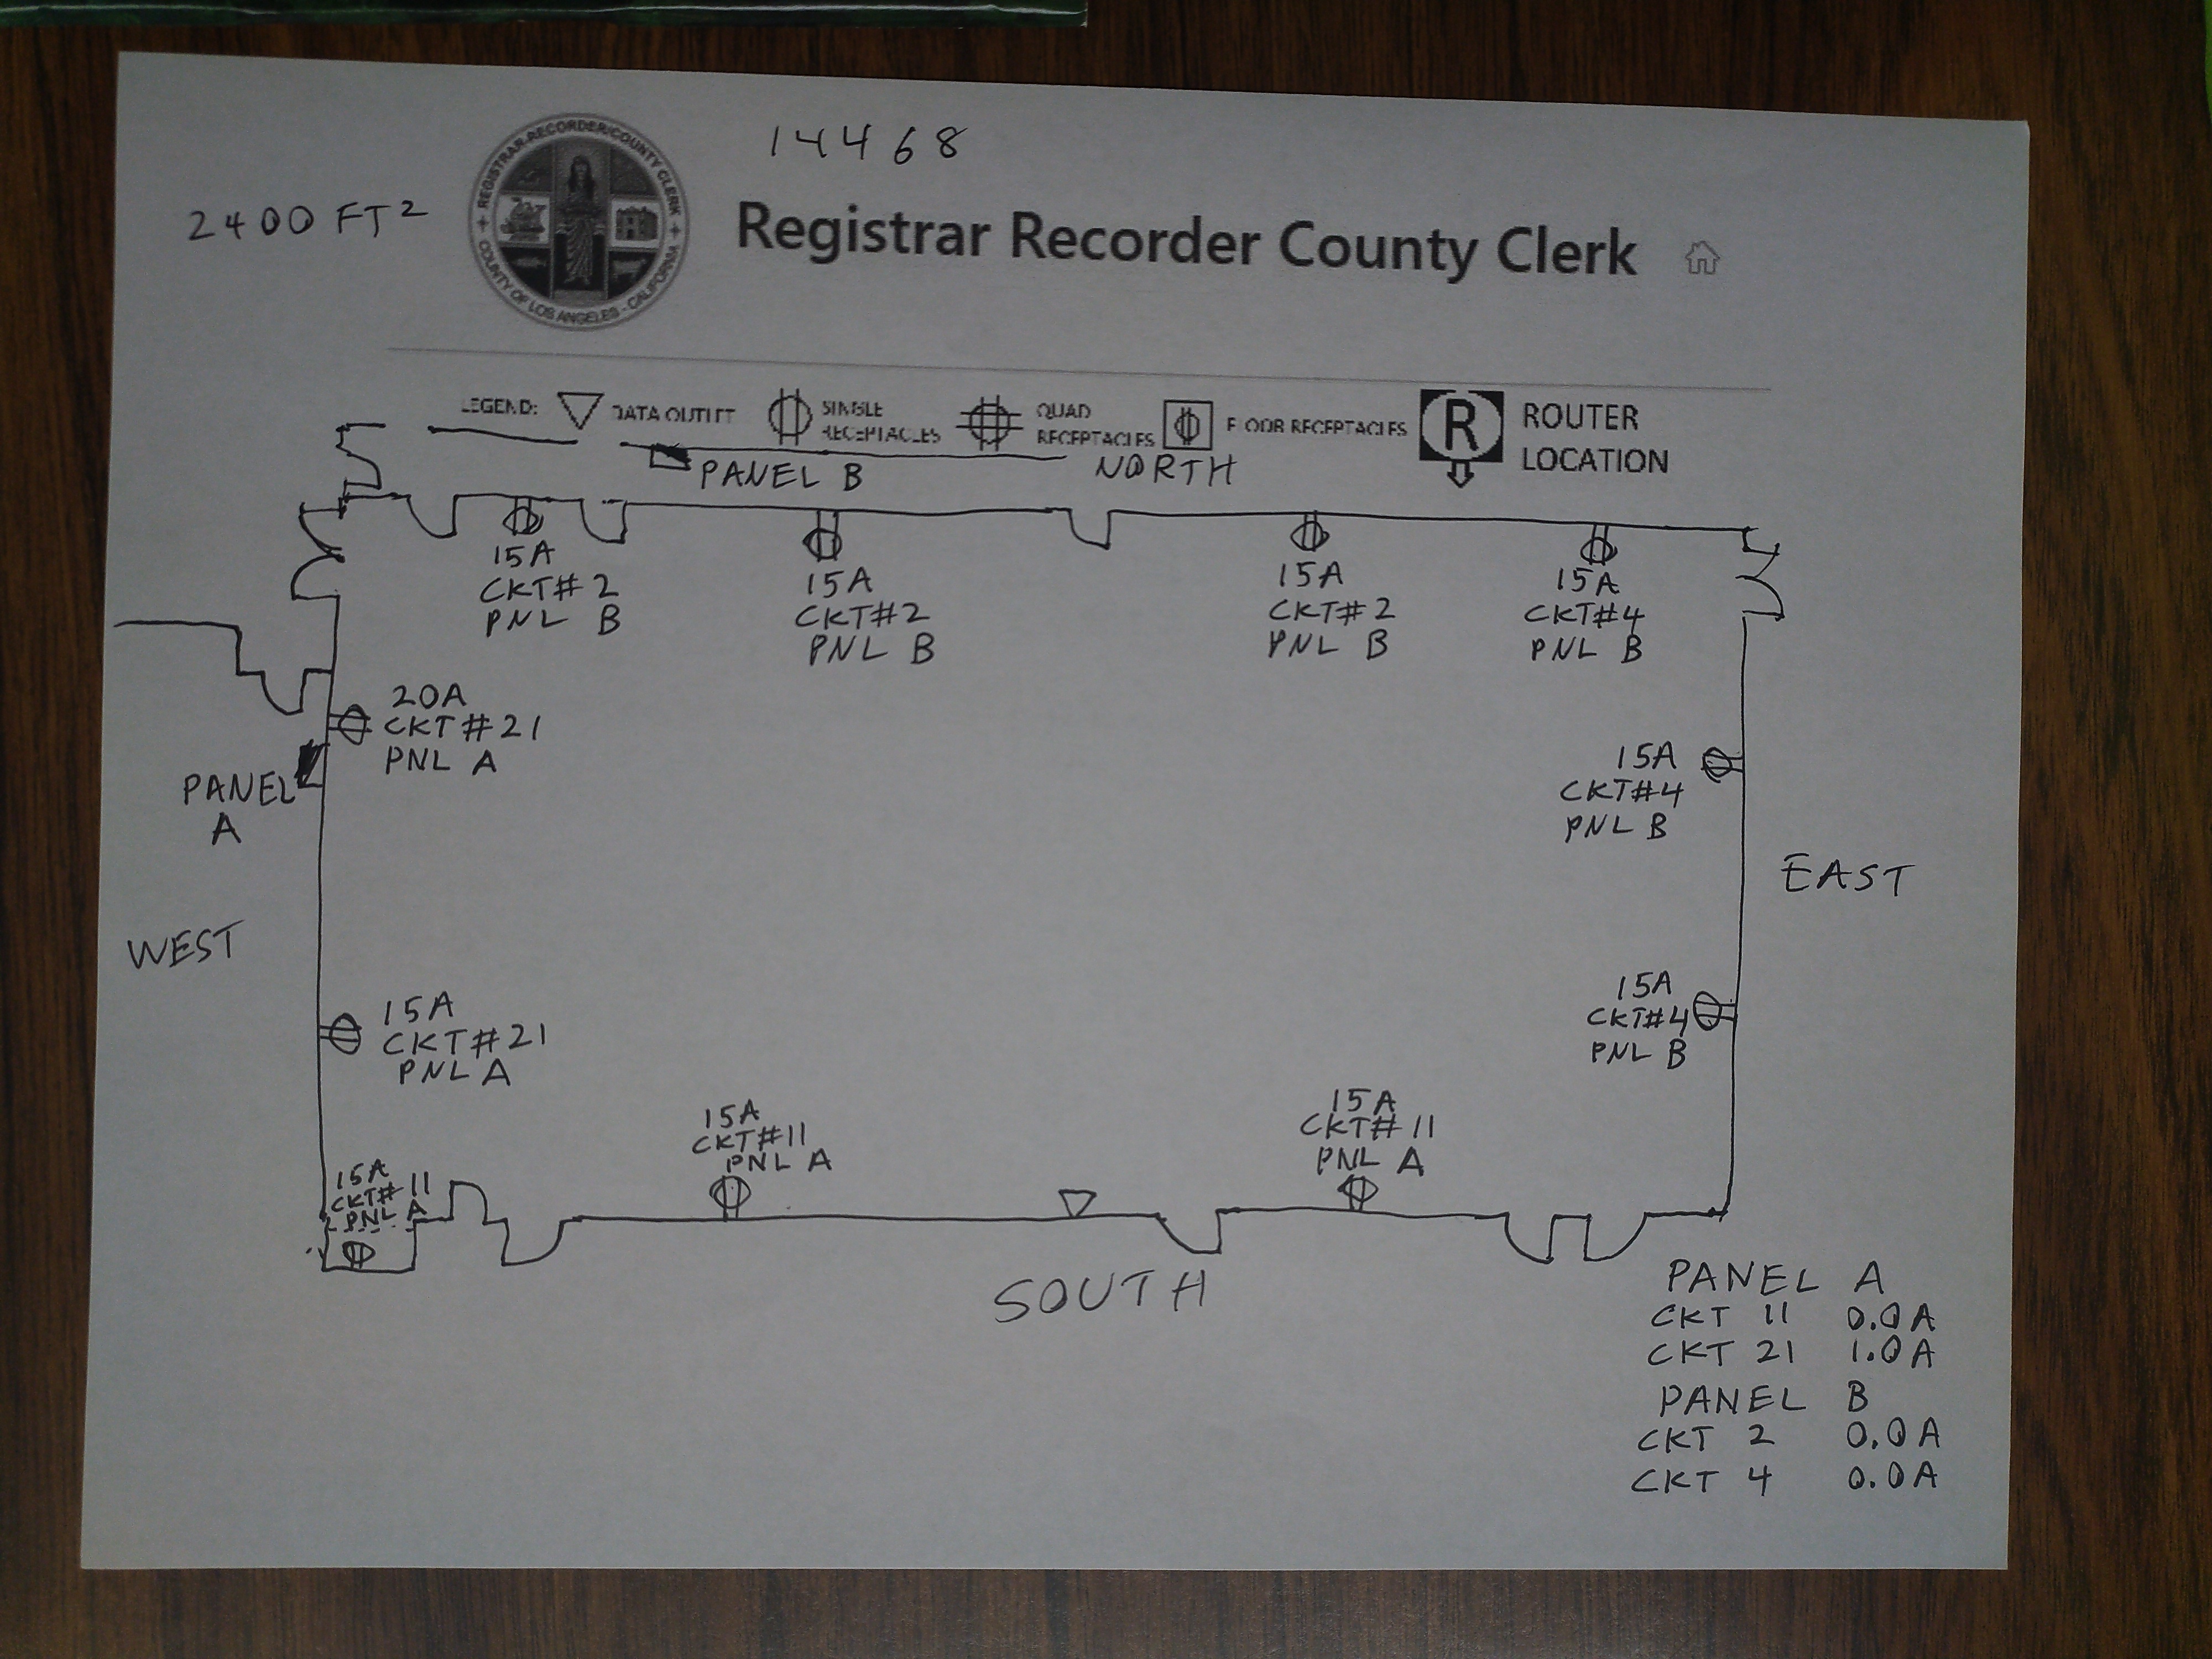 14468
2400 FT²
REGISTRAR-RECORDER/COUNTY CLERK
COUNTY OF LOS ANGELES - CALIFORNIA
Registrar Recorder County Clerk
LEGEND:
DATA OUTLET
SINGLE
RECEPTACLES
QUAD
RECEPTACLES
FLOOR RECEPTACLES
R
ROUTER
LOCATION
PANEL B
NORTH
15A
CKT#2
PNL B
15A
CKT#2
PNL B
15A
CKT#2
PNL B
15A
CKT#4
PNL B
20A
CKT#21
PNL A
PANEL
A
15A
CKT#4
PNL B
EAST
WEST
15A
CKT#21
PNL A
15A
CKT#4
PNL B
15A
CKT#11
PNL A
15A
CKT#11
PNL A
15A
CKT#11
PNL A
SOUTH
PANEL A
CKT 11 0.0A
CKT 21 1.0A
PANEL B
CKT 2 0.0A
CKT 4 0.0A